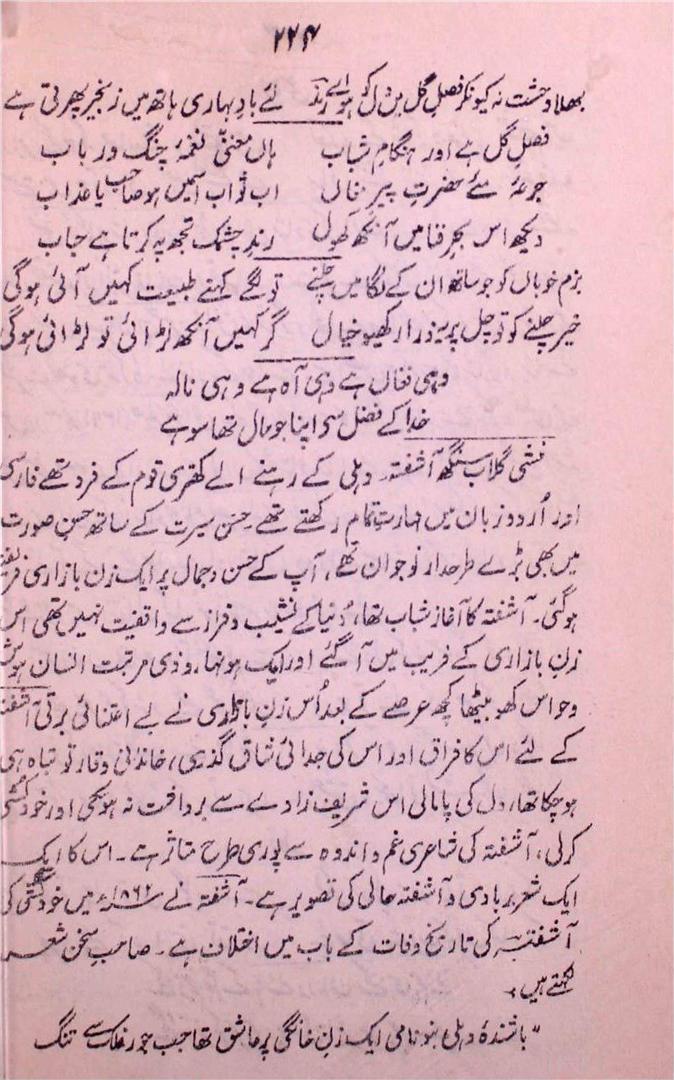 ۲۲۴
بھلا وحشت نہ کیونکر فصل گل میں دل کو ہو اے رند لئے بادِ بہاری ہاتھ میں زنجیر پھرتی ہے
فصلِ گل ہے اور ہنگامِ شباب ہاں مغنّی نغمۂ چنگ و رباب
جرعۂ مئے حضرتِ پیرِ مغاں اب ثواب اسمیں ہو صاحب یا عذاب
دیکھ اس بحرِ فنا میں آنکھ کھول رند چشمک تجھ پہ کرتا ہے حباب
بزم خوباں کو جو ساتھ ان کے لگا میں چلنے تو لگے کہنے طبیعت کہیں آئی ہوگی
خیر چلنے کو تو چل پر یہ ذرا رکھیو خیال گر کہیں آنکھ لڑائی تو لڑائی ہوگی
وہی فغاں ہے وہی آہ ہے وہی نالہ
خدا کے فضل سے اپنا جو حال تھا سو ہے
منشی گلاب سنگھ آشفتہ۔ دہلی کے رہنے والے کھتری قوم کے فرد تھے فارسی
اور اُردو زبان میں مہارتِ تمام رکھتے تھے حسنِ سیرت کے ساتھ حسنِ صورت
میں بھی بڑے طرحدار نوجوان تھے، آپ کے حسن و جمال پر ایک زن بازاری فریفتہ
ہوگئی۔ آشفتہ کا آغاز شباب تھا، دُنیا کے نشیب و فراز سے واقفیت نہیں تھی اس
زنِ بازاری کے فریب میں آگئے اور ایک ہونہار و ذی مرتبت انسان ہوش
و حواس کھو بیٹھا کچھ عرصے کے بعد اُس زنِ بازاری نے بے اعتنائی برتی آشفتہ
کے لئے اس کا فراق اور اس کی جدائی شاق گذری، خاندانی وقار تو تباہ ہی
ہو چکا تھا، دل کی پامالی اس شریف زادے سے برداشت نہ ہوسکی اور خودکشی
کرلی، آشفتہ کی شاعری غم و اندوہ سے پوری طرح متاثر ہے۔ اس کا ایک
ایک شعر بربادی و آشفتہ حالی کی تصویر ہے۔ آشفتہ نے ۱۸۶۲ء میں خودکشی کی
آشفتہ کی تاریخ وفات کے باب میں اختلان ہے۔ صاحبِ سخن شعراء
لکھتے ہیں،
"باشندۂ دہلی بنو نامی ایک زن خانگی پر عاشق تھا جب جور فلک سے تنگ